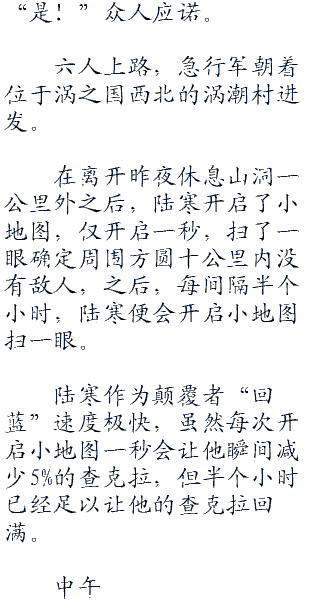 “是！”众人应诺。
六人上路，急行军朝着
位于涡之国西北的涡潮村进
发。
在离开昨夜休息山洞一
公里外之后，陆寒开启了小
地图，仅开启一秒，扫了一
眼确定周围方圆十公里内没
有敌人，之后，每间隔半个
小时，陆寒便会开启小地图
扫一眼。
陆寒作为颠覆者“回
蓝”速度极快，虽然每次开
启小地图一秒会让他瞬间减
少5%的查克拉，但半个小时
已经足以让他的查克拉回
满。
中午